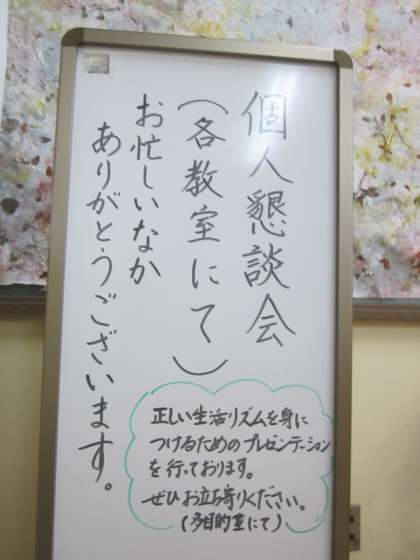 個人懇談会
(各教室にて)
お忙しいなか
ありがとうございます。
正しい生活リズムを身に
つけるためのプレゼンテーション
を行っております。
ぜひお立ち寄りください。
(多目的室にて)